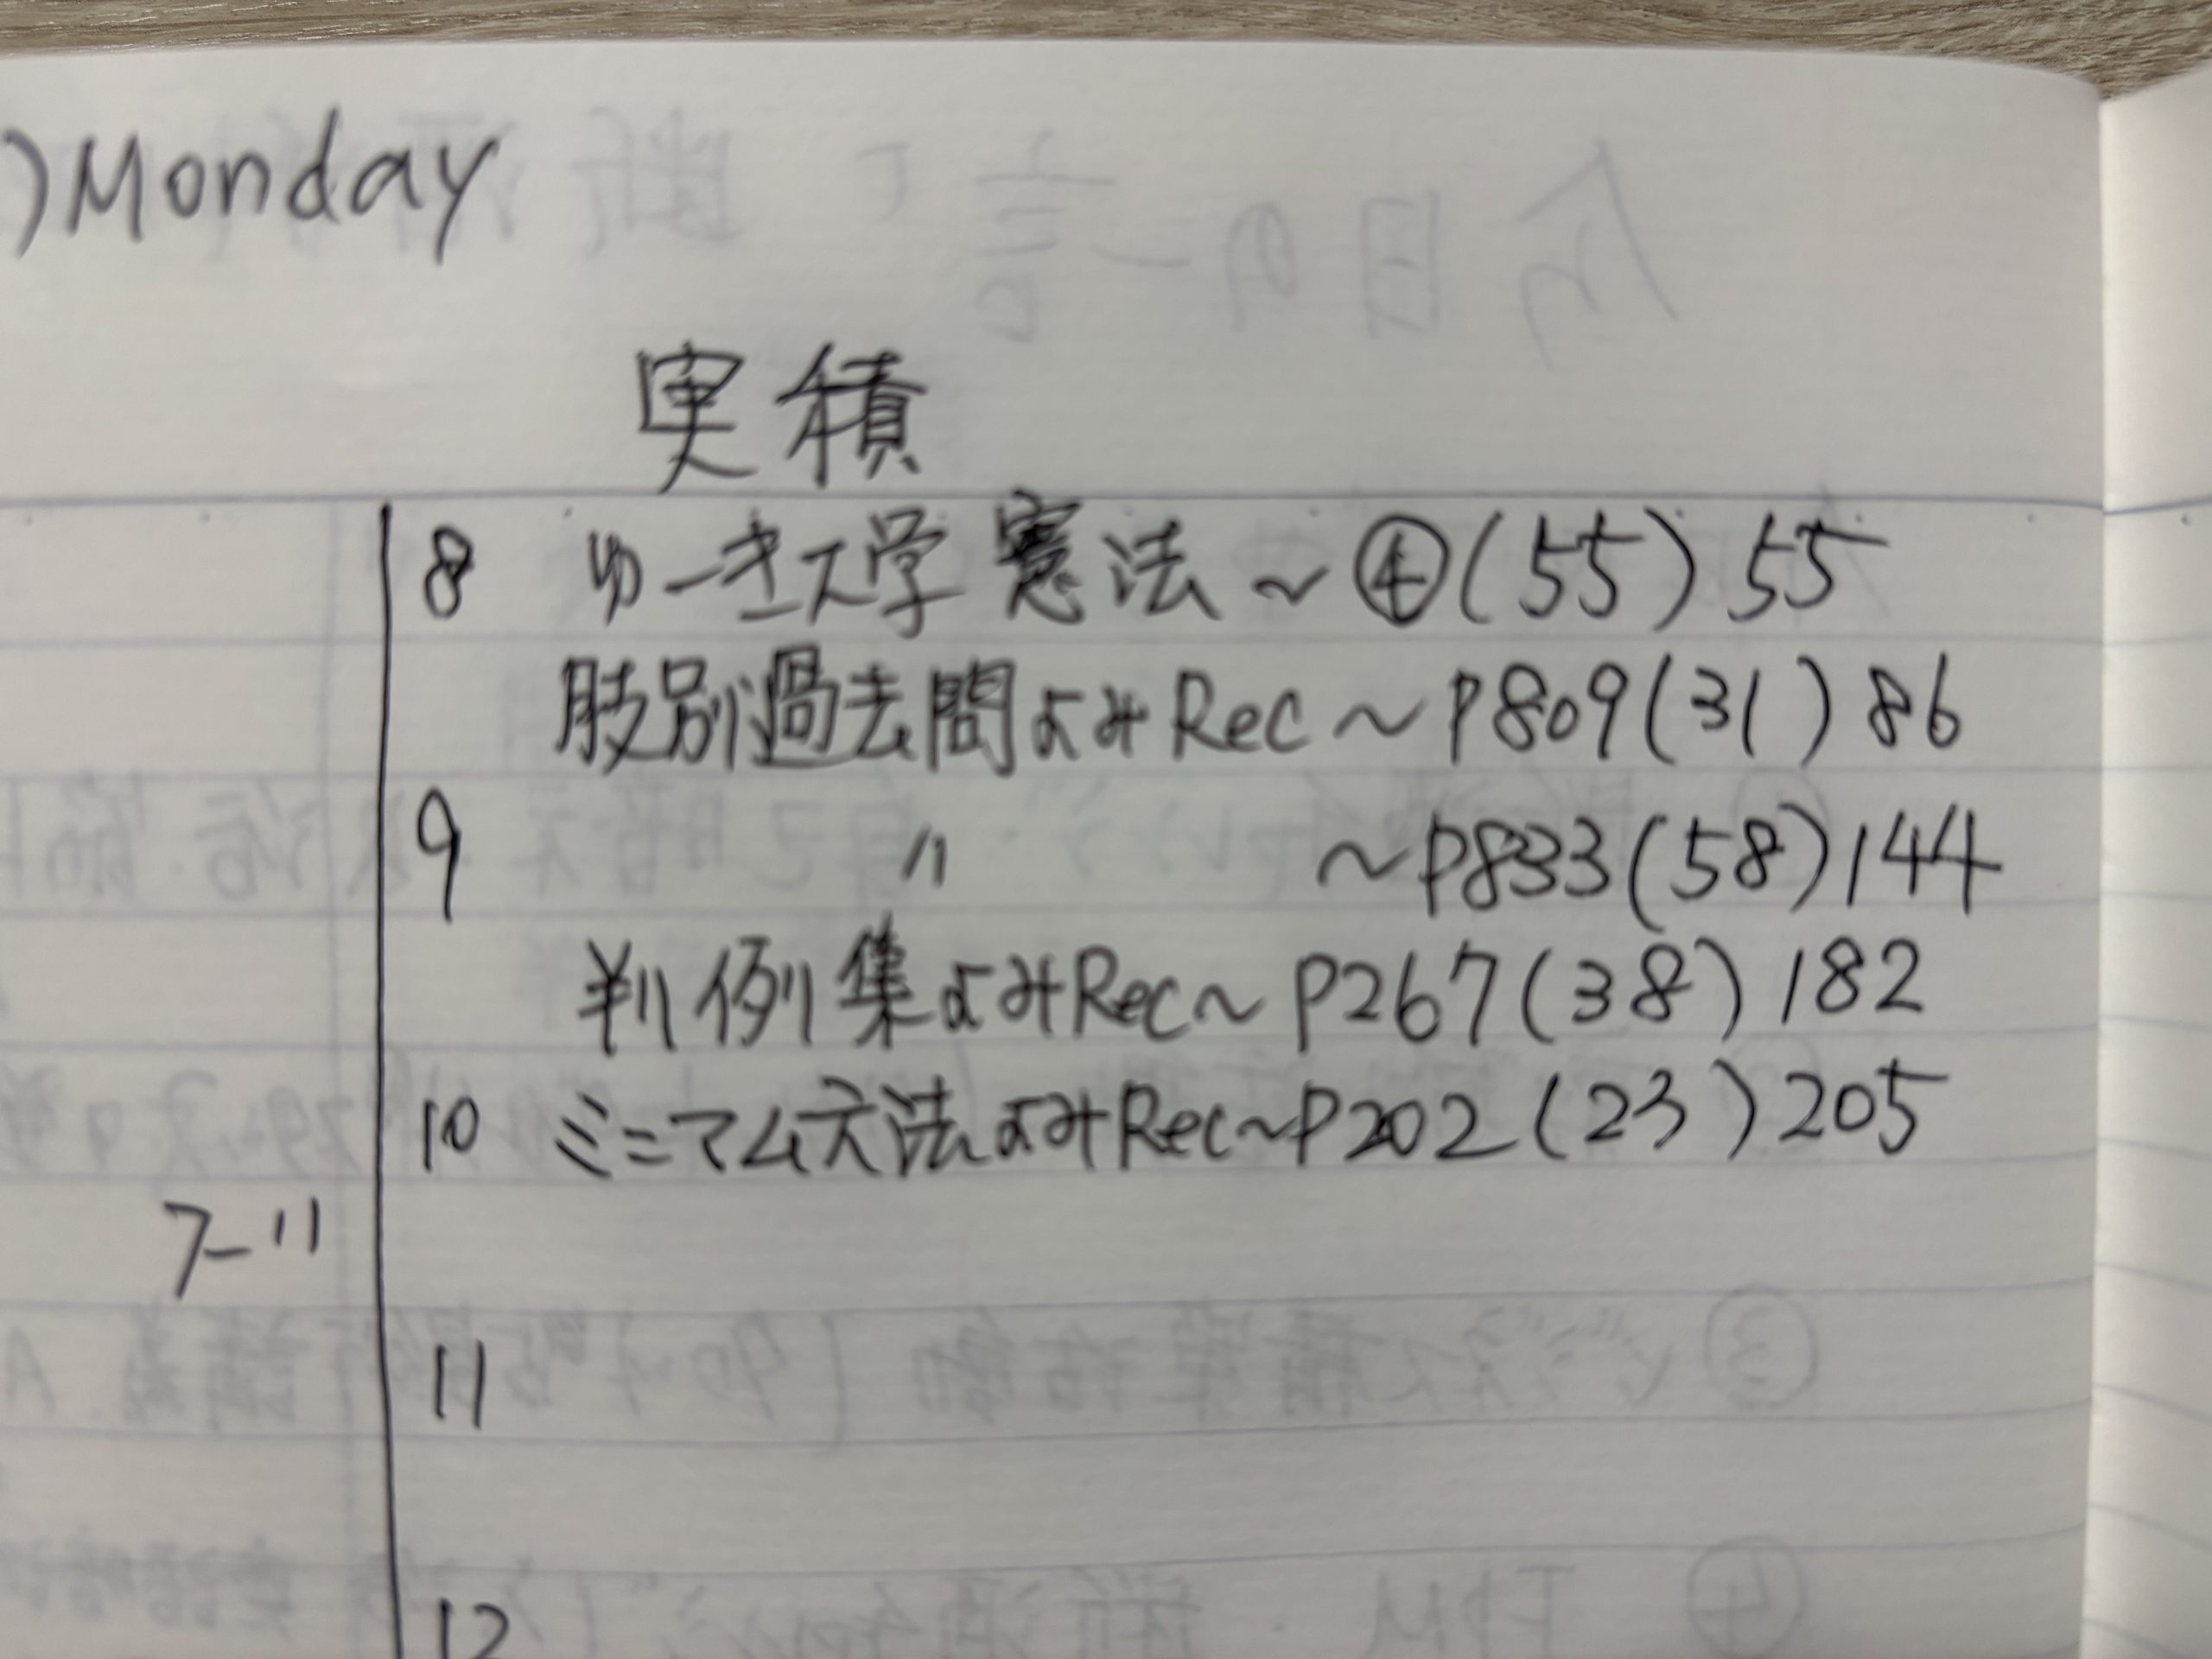 )Monday
実積
8 ゆーき大学 憲法 ~ ④(55) 55
肢別過去問よみRec ~ P809(31) 86
9 〃 ~P833(58)144
判例集よみRec~P267(38)182
10 ミニマム六法よみRec~P202(23)205
7-11
11
12